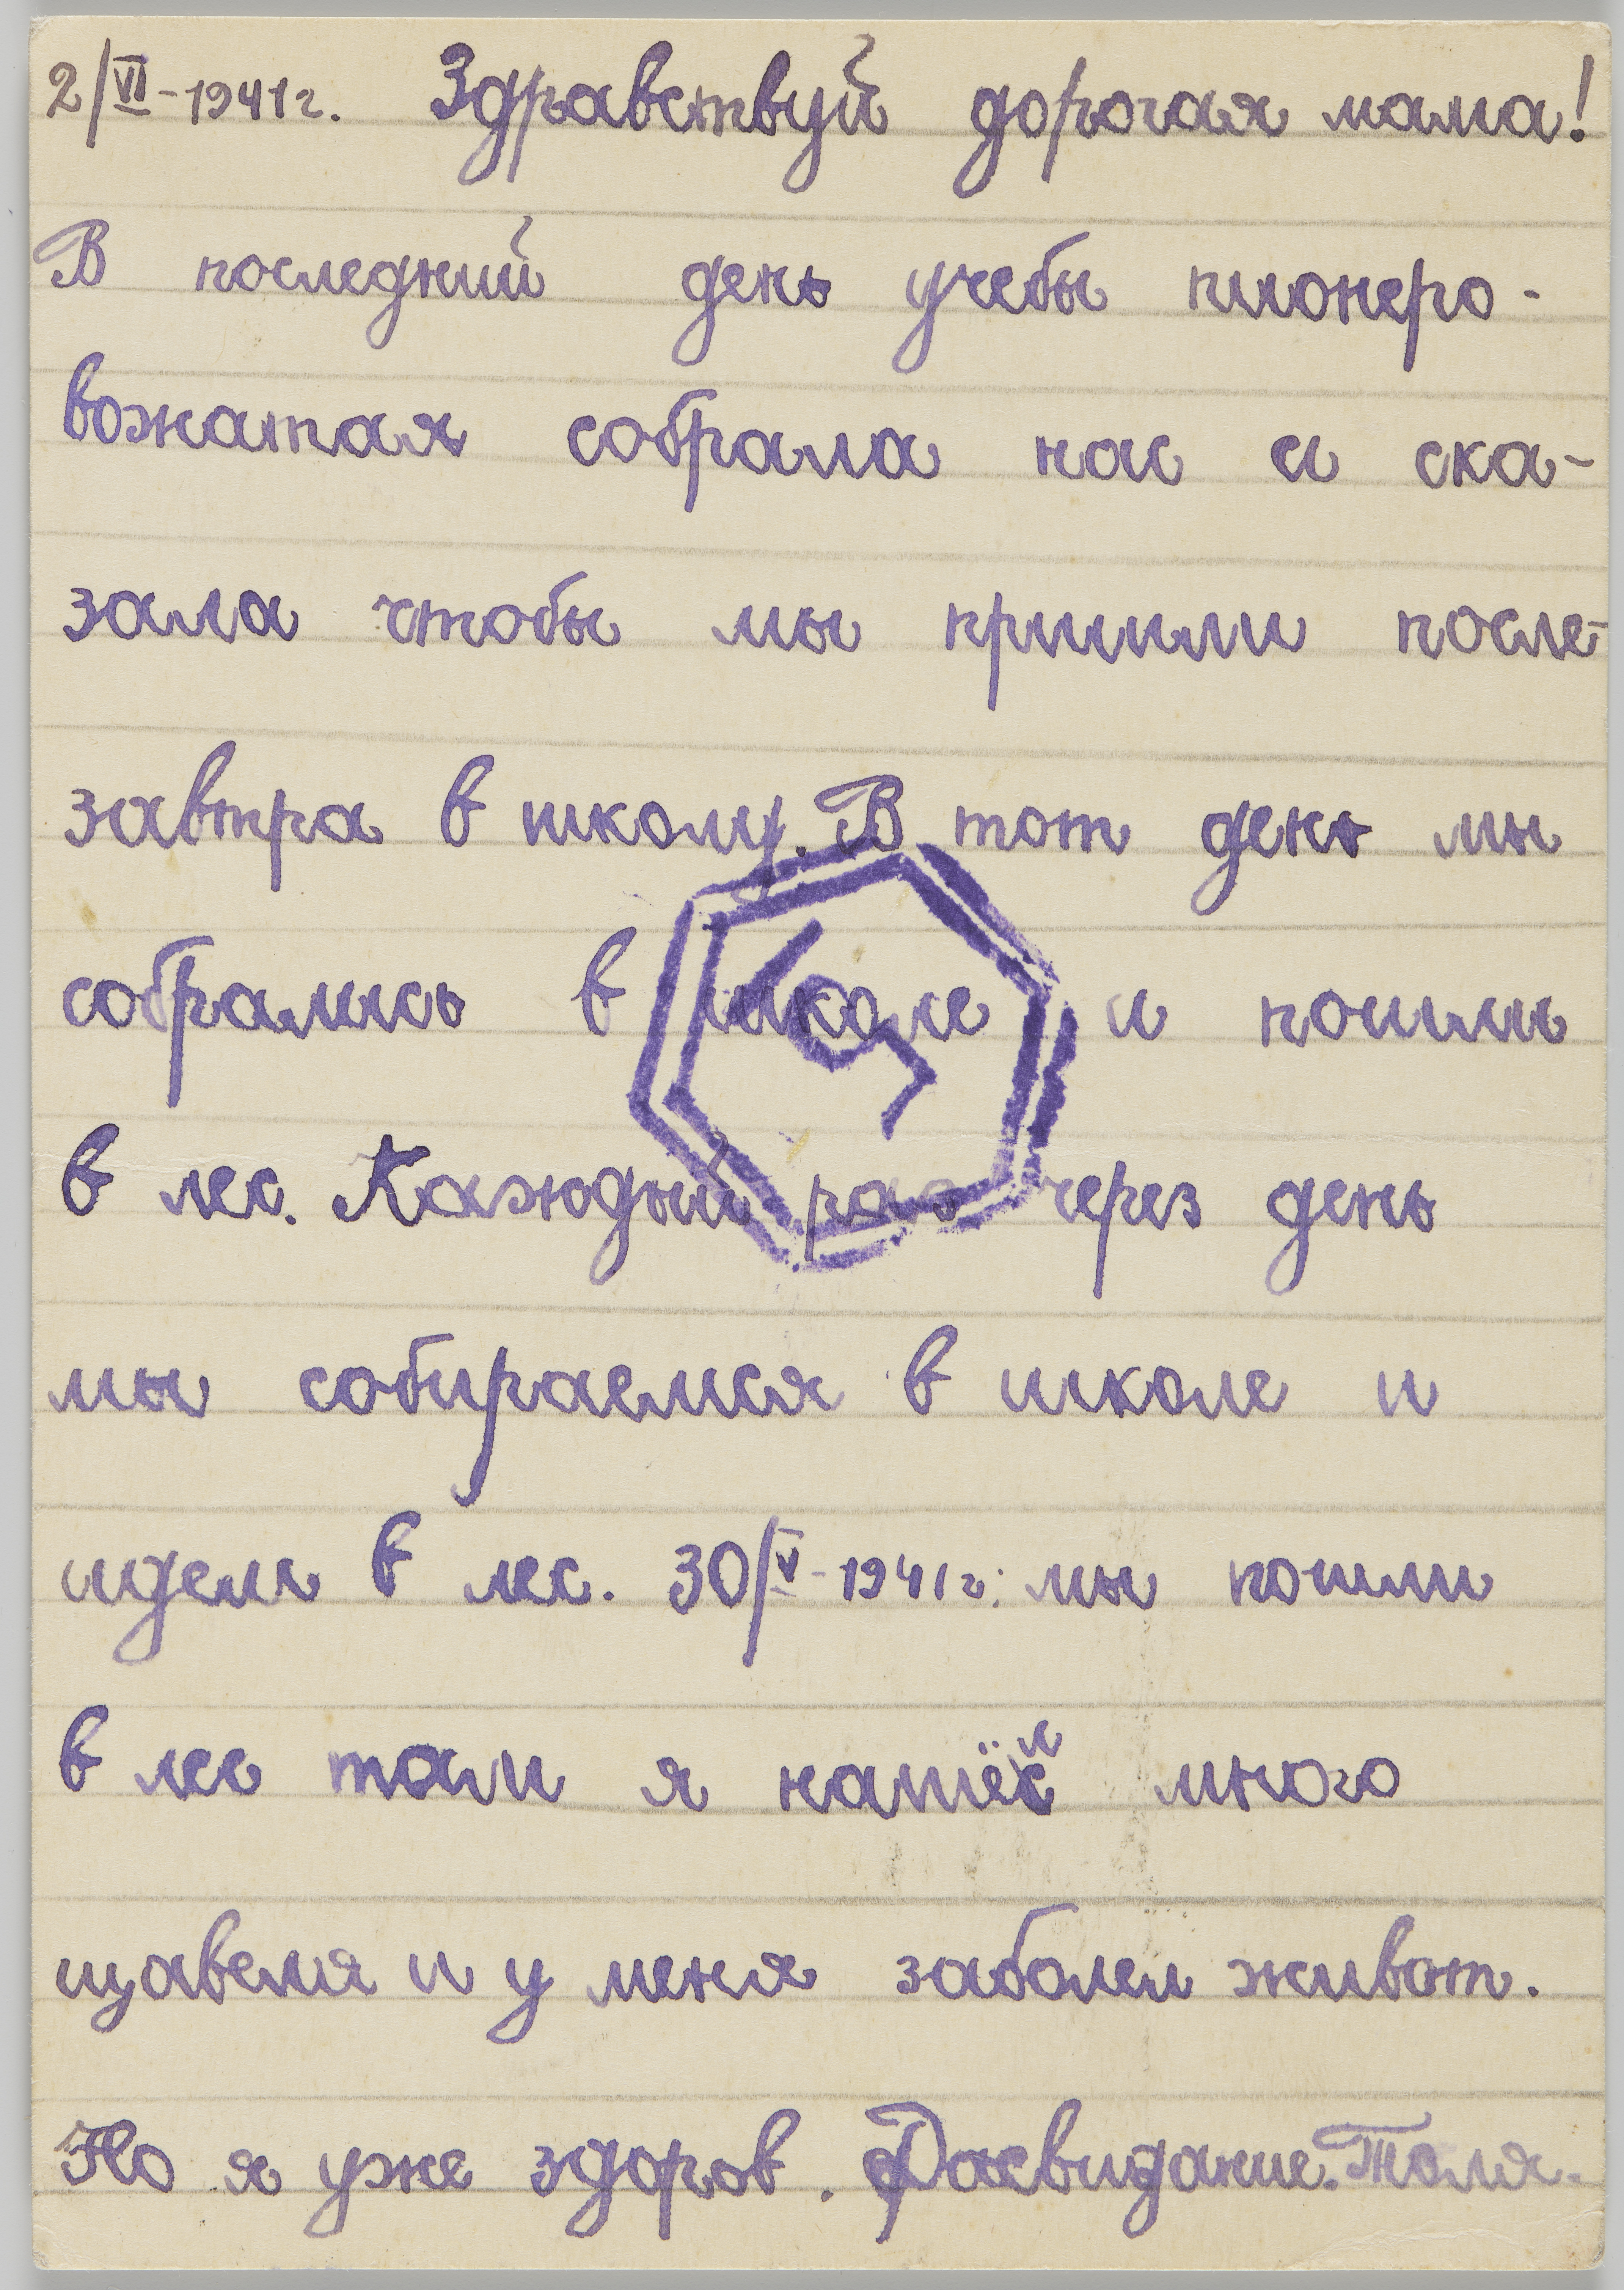 2/VI-1941г. Здравствуй дорогая мама!
В последний день учебы пионеро-
вожатая собрала нас и ска-
зала чтобы мы пришли после-
завтра в школу. В тот день мы
собрались в школе и пошли
в лес. Каждый раз через день
мы собираемся в школе и
идем в лес. 30/V-1941г. мы пошли
в лес там я нашёл много
щавеля и у меня заболел живот.
Но я уже здоров. Досвидание. Толя.